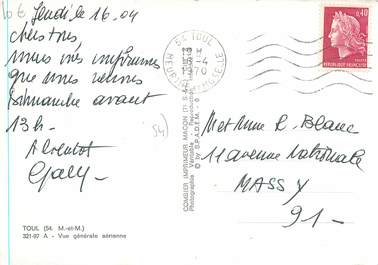 10 €
Jeudi le 16.04
chers tous,
nous vous informons
que nous venons
Dimanche avant
13 h -
A bientôt
54)
TOUL (54. M.-et-M.)
321-97 A - Vue générale aérienne
COMBIER IMPRIMEUR MACON
Photographie Véritable - Reproduction
© by S.P.A.D.E.M.
54 TOUL
16-4
1970
MEURTHE ET MOSELLE
0,40
REPUBLIQUE FRANÇAISE
M et Mme R. Blanc
11 avenue Nationale
MASSY
91 -